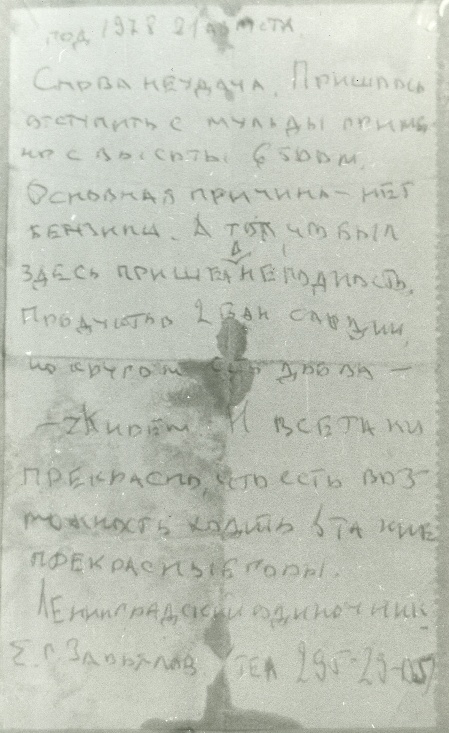 год 1978 21 августа
Снова неудача. Пришлось
отступить с мульды пример
но с высоты 6500м.
Основная причина – нет
бензина. А тот что был
здесь пришел а в негодность.
Продуктов 2 бан сардин,
но кругом дрова –
– живём. И всетаки
прекрасно, что есть воз-
можность ходить в такие
прекрасные горы.
Ленинградский одиночник
Е.Г. Завьялов. тел 295-29-05